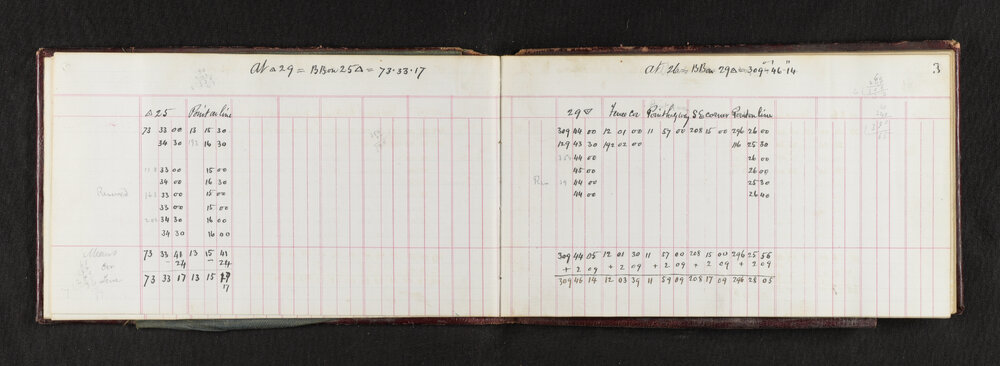 At △ 29 = BB on 25 △ = 73·33·17
△ 25 Point on line
73 33 00 13 15 30
34 30 193 16 30
33 00 15 00
34 00 16 30
33 00 15 00
33 00 15 00
34 30 16 00
34 30 16 00
Means 73 33 41 13 15 41
- 24 - 24
73 33 17 13 15 17
3
At 26 = BB on 29 △ = 309° 46' 14"
29 ▽ Fence Cor Point higway S E corner Point on line
309 44 00 12 01 00 11 57 00 208 15 00 296 26 00
129 43 30 192 02 00 116 25 30
44 00 26 00
45 00 26 00
44 00 25 30
44 00 26 40
309 44 05 12 01 30 11 57 00 208 15 00 296 25 56
+ 2 09 + 2 09 + 2 09 + 2 09 + 2 09
309 46 14 12 03 39 11 59 09 208 17 09 296 28 05